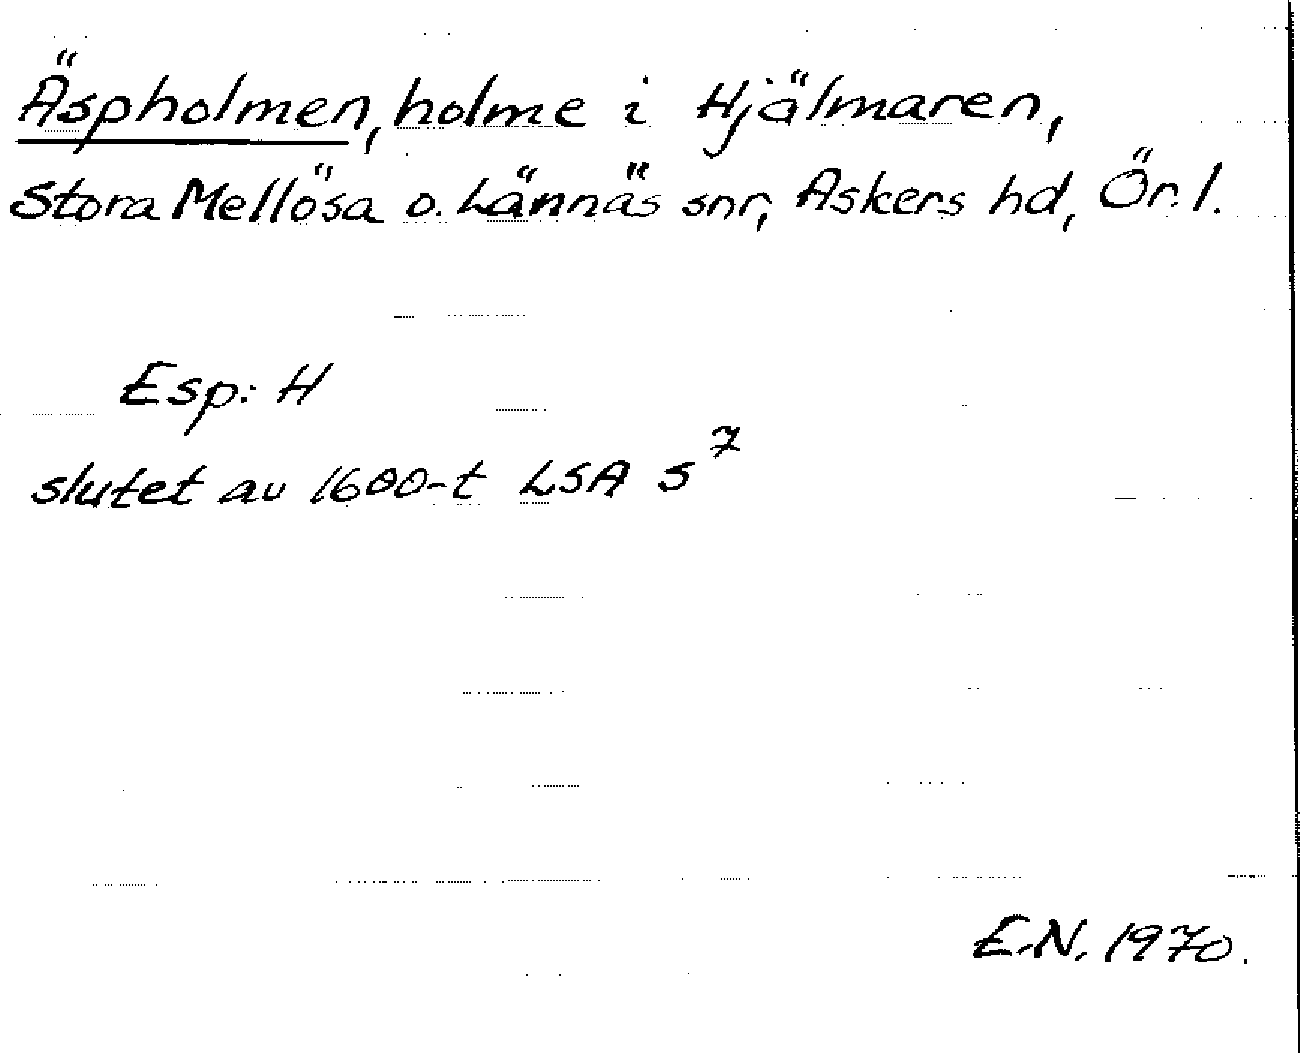 Äspholmen, holme i Hjälmaren,
Stora Mellösa o. Lännäs snr, Askers hd, Ör. l.
Esp: H
slutet av 1600-t LSA S 7
E.N. 1970.